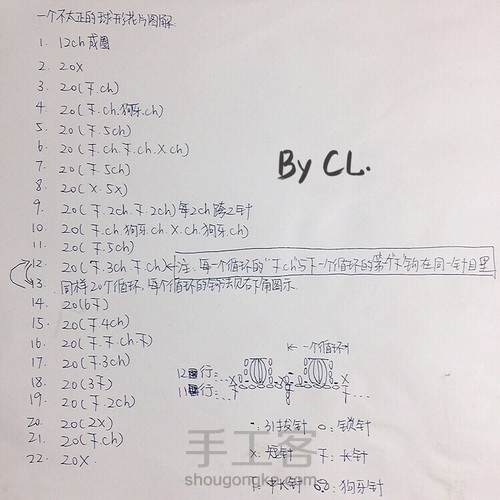 一个不太正的球形花片图解
1. 12ch成圈
2. 20X
3. 20(下.ch)
4. 20(下.ch.狗牙.ch)
5. 20(下.5ch)
6. 20(下.ch.下.ch.X.ch)
7. 20(下.5ch)
8. 20(X.5X)
9. 20(下.2ch.下.2ch)每2ch跨2针
10. 20(下.ch.狗牙.ch.X.ch.狗牙.ch)
11. 20(下.5ch)
12. 20(下.3ch.下.ch)←注.每一个循环的"下ch"与下一个循环的第一个下钩在同一针目里
13. 同样20个循环,每个循环的钩法见右下角图示.
14. 20(6下)
15. 20(下.4ch)
16. 20(下.下.ch.下)
17. 20(下.3ch)
18. 20(3下)
19. 20(下.2ch)
20. 20(2X)
21. 20(下.ch)
22. 20X.
By CL.
←一个循环→
12行:...
11行:...
-:引拔针 o:锁针
X:短针 下:长针
T:中长针 狗牙针
手工客
shougongke.com